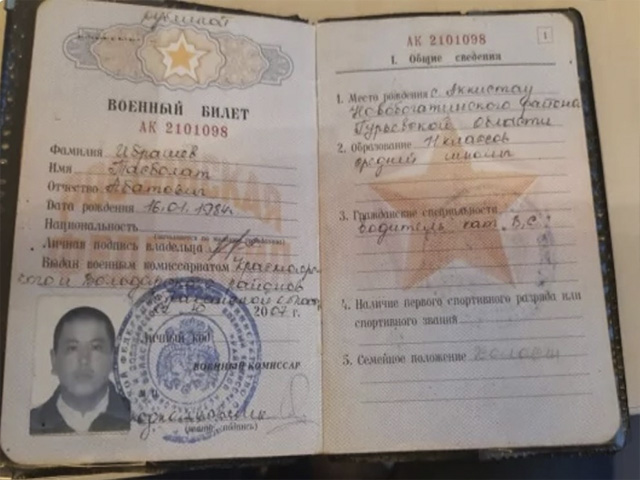 ВОЕННЫЙ БИЛЕТ
АК 2101098
Фамилия Ибрашев
Имя Насболат
Отчество Абатович
Дата рождения 16.01.1984г.
Национальность
Личная подпись владельца
Выдан военным комиссариатом Красноярского и Володарского районов
2007 г.
Личный код
ВОЕННЫЙ КОМИССАР
АК 2101098
1
I. Общие сведения
1. Место рождения с. Аккистау
Новобогатинского района
Гурьевской области
2. Образование 11 классов
средней школы
3. Гражданские специальности
водитель кат. В, С.
4. Наличие первого спортивного разряда или
спортивного звания
5. Семейное положение холост